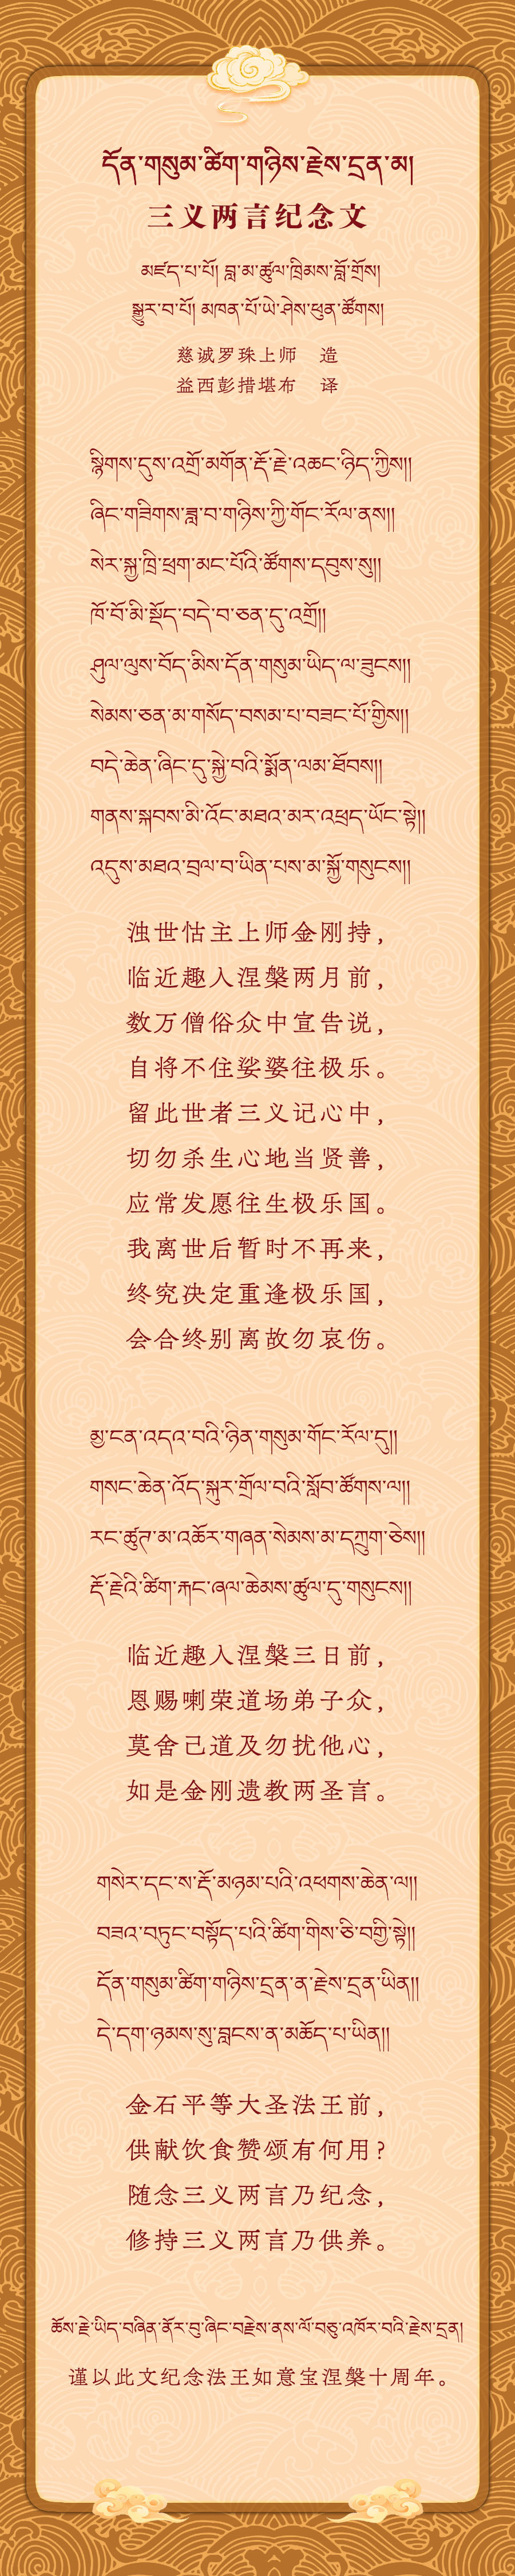 དོན་གསུམ་ཚིག་གཉིས་རྗེས་དྲན་མ།
三义两言纪念文
མཛད་པ་པོ། བླ་མ་ཚུལ་ཁྲིམས་བློ་གྲོས།
སྒྱུར་བ་པོ། མཁན་པོ་ཡེ་ཤེས་ཕུན་ཚོགས།
慈诚罗珠上师 造
益西彭措堪布 译
སྙིགས་དུས་འགྲོ་མགོན་རྡོ་རྗེ་འཆང་ཉིད་ཀྱིས།།
ཞིང་གཤེགས་ཟླ་བ་གཉིས་ཀྱི་གོང་རོལ་ནས།།
སེར་སྐྱ་ཁྲི་ཕྲག་མང་པོའི་ཚོགས་དབུས་སུ།།
ཁོ་བོ་མི་སྡོད་བདེ་བ་ཅན་དུ་འགྲོ།།
ཤུལ་ལུས་བོད་མིས་དོན་གསུམ་ཡིད་ལ་ཟུངས།།
སེམས་ཅན་མ་གསོད་བསམ་པ་བཟང་པོ་གྱིས།།
བདེ་ཆེན་ཞིང་དུ་སྐྱེ་བའི་སྨོན་ལམ་ཐོབས།།
གནས་སྐབས་མི་འོང་མཐའ་མར་འཕྲད་ཡོང་སྟེ།།
འདུས་མཐའ་བྲལ་བ་ཡིན་པས་མ་སྐྱོ་གསུངས།།
浊世怙主上师金刚持，
临近趣入涅槃两月前，
数万僧俗众中宣告说，
自将不住娑婆往极乐。
留此世者三义记心中，
切勿杀生心地当贤善，
应常发愿往生极乐国。
我离世后暂时不再来，
终究决定重逢极乐国，
会合终别离故勿哀伤。
མྱ་ངན་འདའ་བའི་ཉིན་གསུམ་གོང་རོལ་དུ།།
གསང་ཆེན་འོད་སྐུར་གྲོལ་བའི་སློབ་ཚོགས་ལ།།
རང་ཚུགས་མ་འཆོར་གཞན་སེམས་མ་དཀྲུག་ཅེས།།
རྡོ་རྗེའི་ཚིག་རྐང་ཞལ་ཆེམས་ཚུལ་དུ་གསུངས།།
临近趣入涅槃三日前，
恩赐喇荣道场弟子众，
莫舍己道及勿扰他心，
如是金刚遗教两圣言。
གསེར་དང་ས་རྡོ་མཉམ་པའི་འཕགས་ཆེན་ལ།།
བཟའ་བཏུང་བསྟོད་པའི་ཚིག་གིས་ཅི་བགྱི་སྟེ།།
དོན་གསུམ་ཚིག་གཉིས་དྲན་ན་རྗེས་དྲན་ཡིན།།
དེ་དག་ཉམས་སུ་བླངས་ན་མཆོད་པ་ཡིན།།
金石平等大圣法王前，
供献饮食赞颂有何用？
随念三义两言乃纪念，
修持三义两言乃供养。
ཆོས་རྗེ་ཡིད་བཞིན་ནོར་བུ་ཞིང་བརྗེས་ནས་ལོ་བཅུ་འཁོར་བའི་རྗེས་དྲན།
谨以此文纪念法王如意宝涅槃十周年。